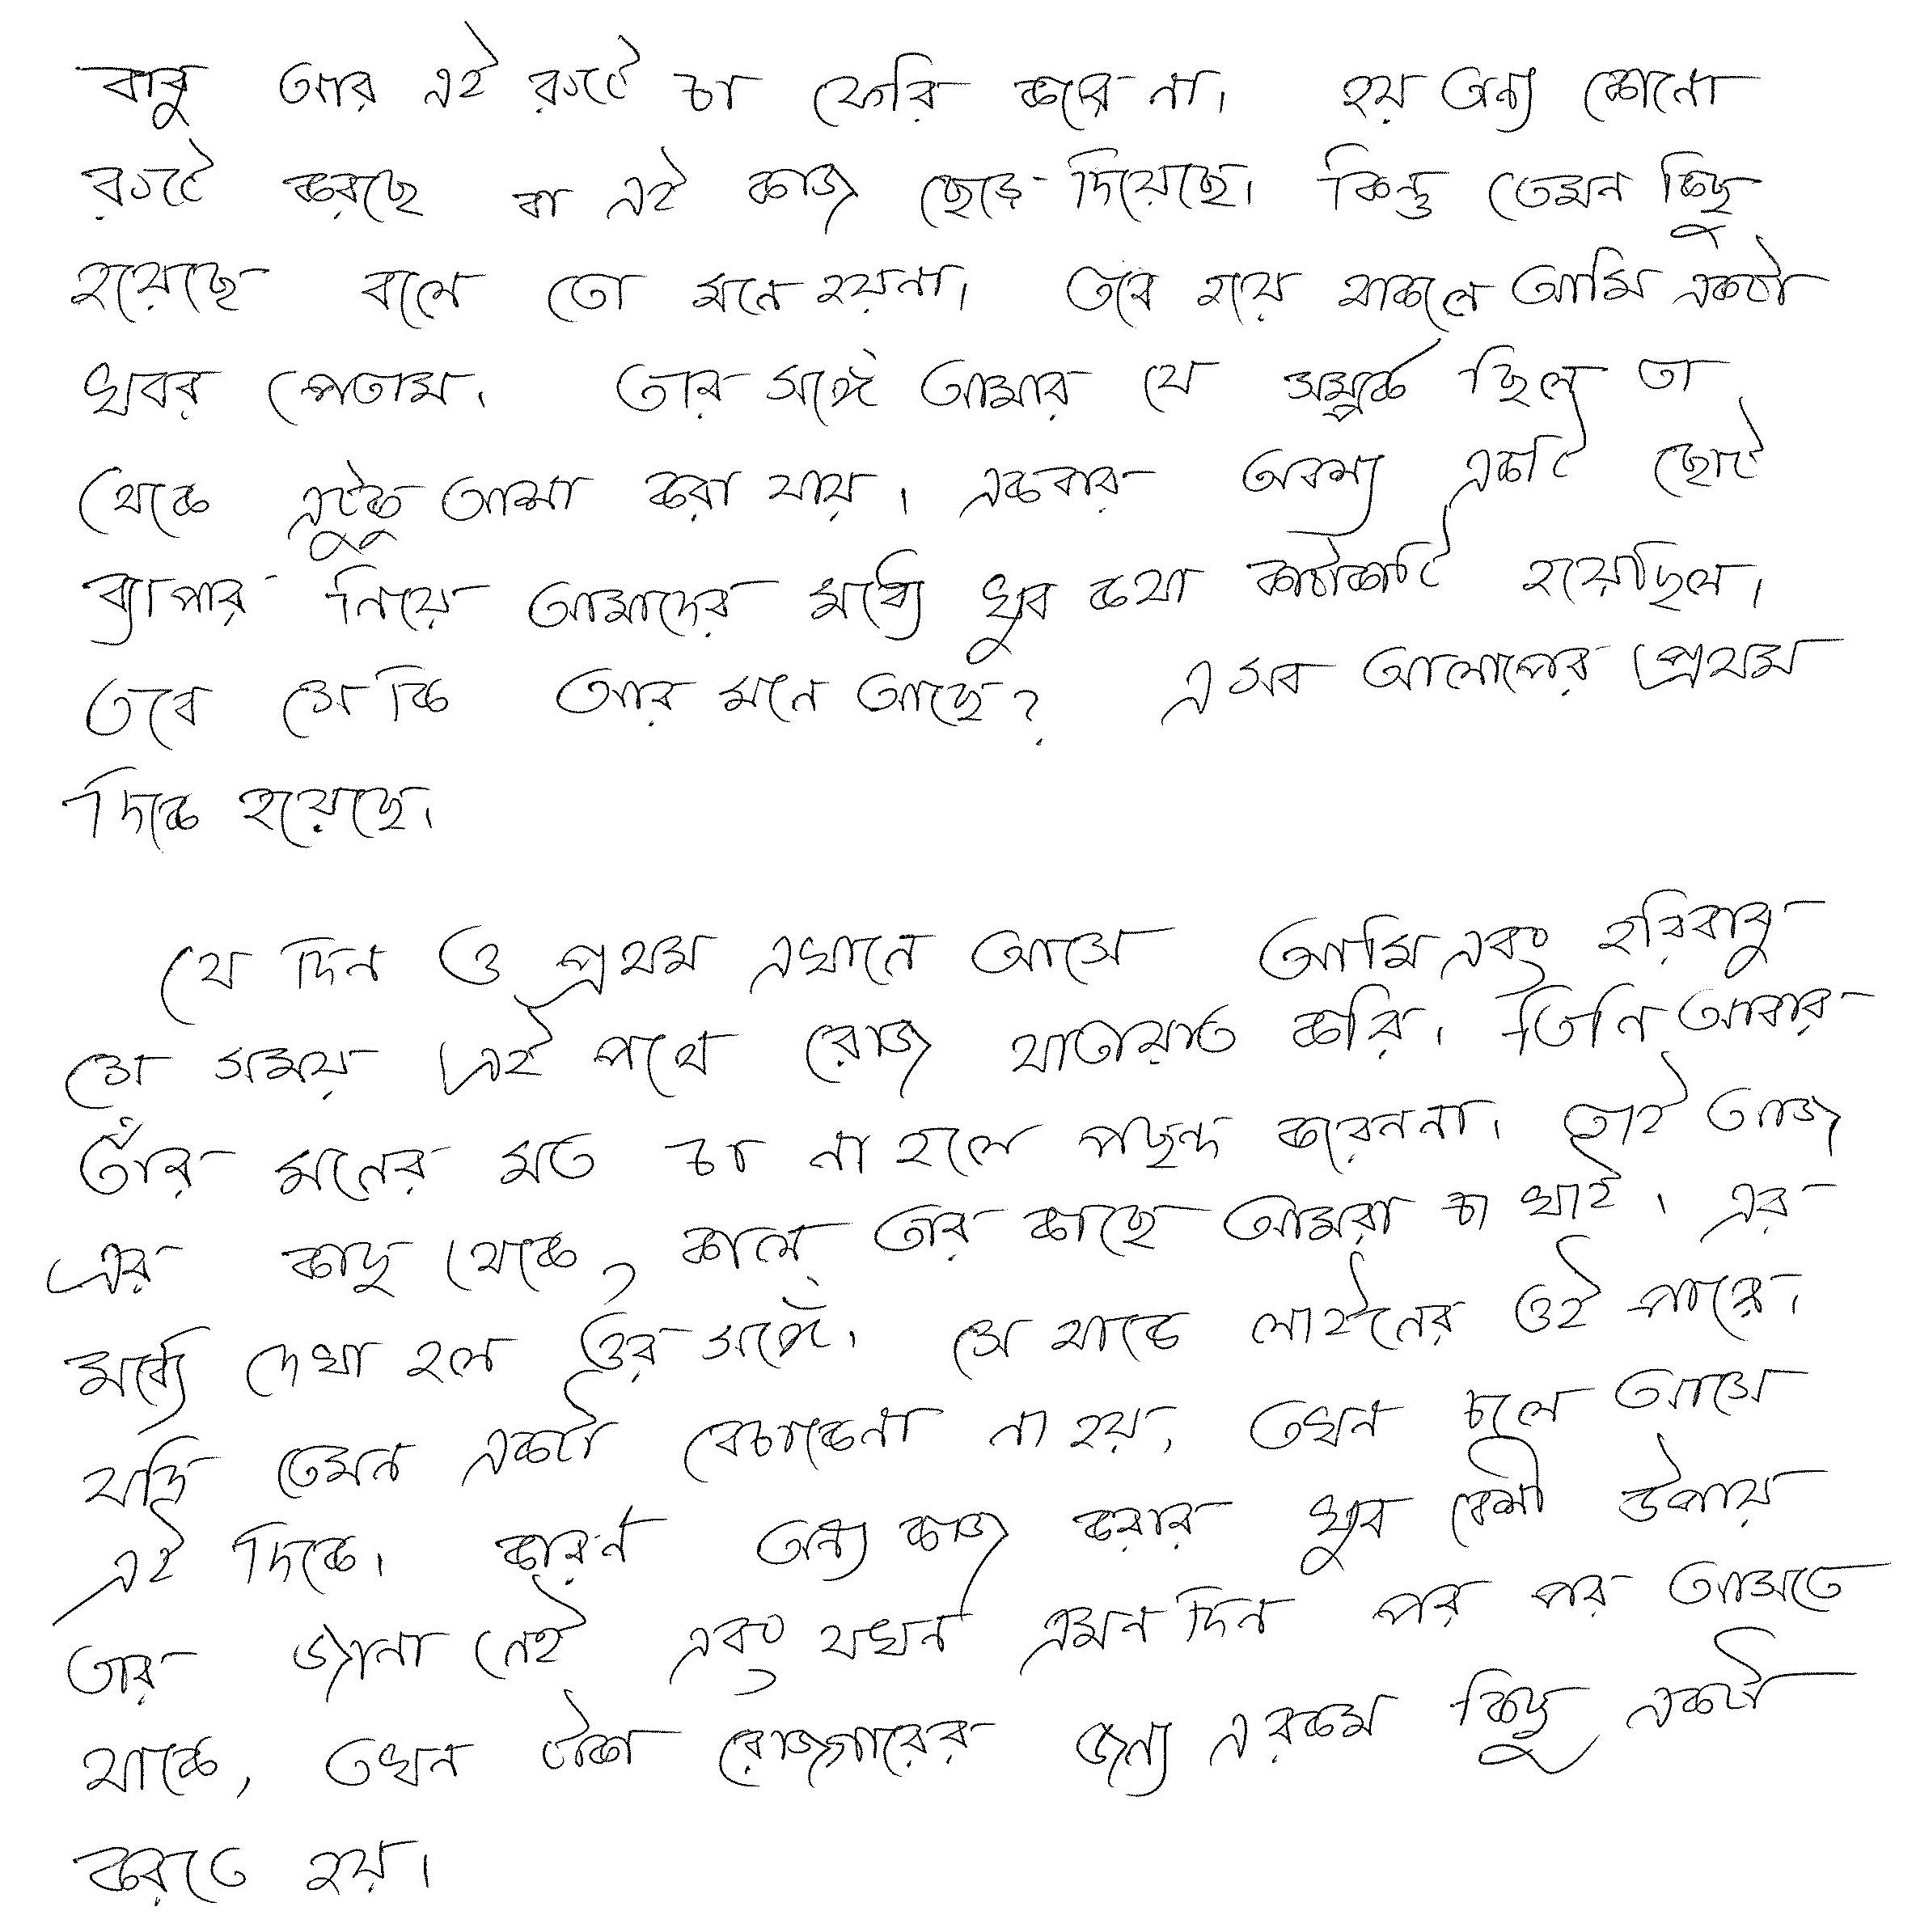 বাবু আর এই রুটে চা ফেরি করে না। হয় অন্য কোনো
রুটে করছে বা এই কাজ ছেড়ে দিয়েছে। কিন্তু তেমন কিছু
হয়েছে বলে তো মনে হয়না। তবে হয়ে থাকলে আমি একটা
খবর পেতাম। তার সঙ্গে আমার যে সম্পর্ক ছিল তা
থেকে এটুকু আশা করা যায়। একবার অবশ্য একটি ছোট
ব্যাপার নিয়ে আমাদের মধ্যে খুব কথা কাটাকাটি হয়েছিল।
তবে সে কি আর মনে আছে? এ সব আলাপের প্রথম
দিকে হয়েছে।
যে দিন ও প্রথম এখানে আসে আমি এবং হরিবাবু
সে সময় এই পথে রোজ যাতায়াত করি। তিনি আবার
তাঁর মনের মত চা না হলে পছন্দ করেননা। তাই আজ
এর কাছ থেকে, কাল তার কাছে আমরা চা খাই। এর
মধ্যে দেখা হল ওর সঙ্গে। সে থাকে লাইনের ওই পারে।
যদি তেমন একটা বেচাকেনা না হয়, তখন চলে আসে
এই দিকে। কারন অন্য কাজ করার খুব বেশী উপায়
তার জানা নেই এবং যখন এমন দিন পর পর আসতে
থাকে, তখন টাকা রোজগারের জন্য এরকম কিছু একটা
করতে হয়।